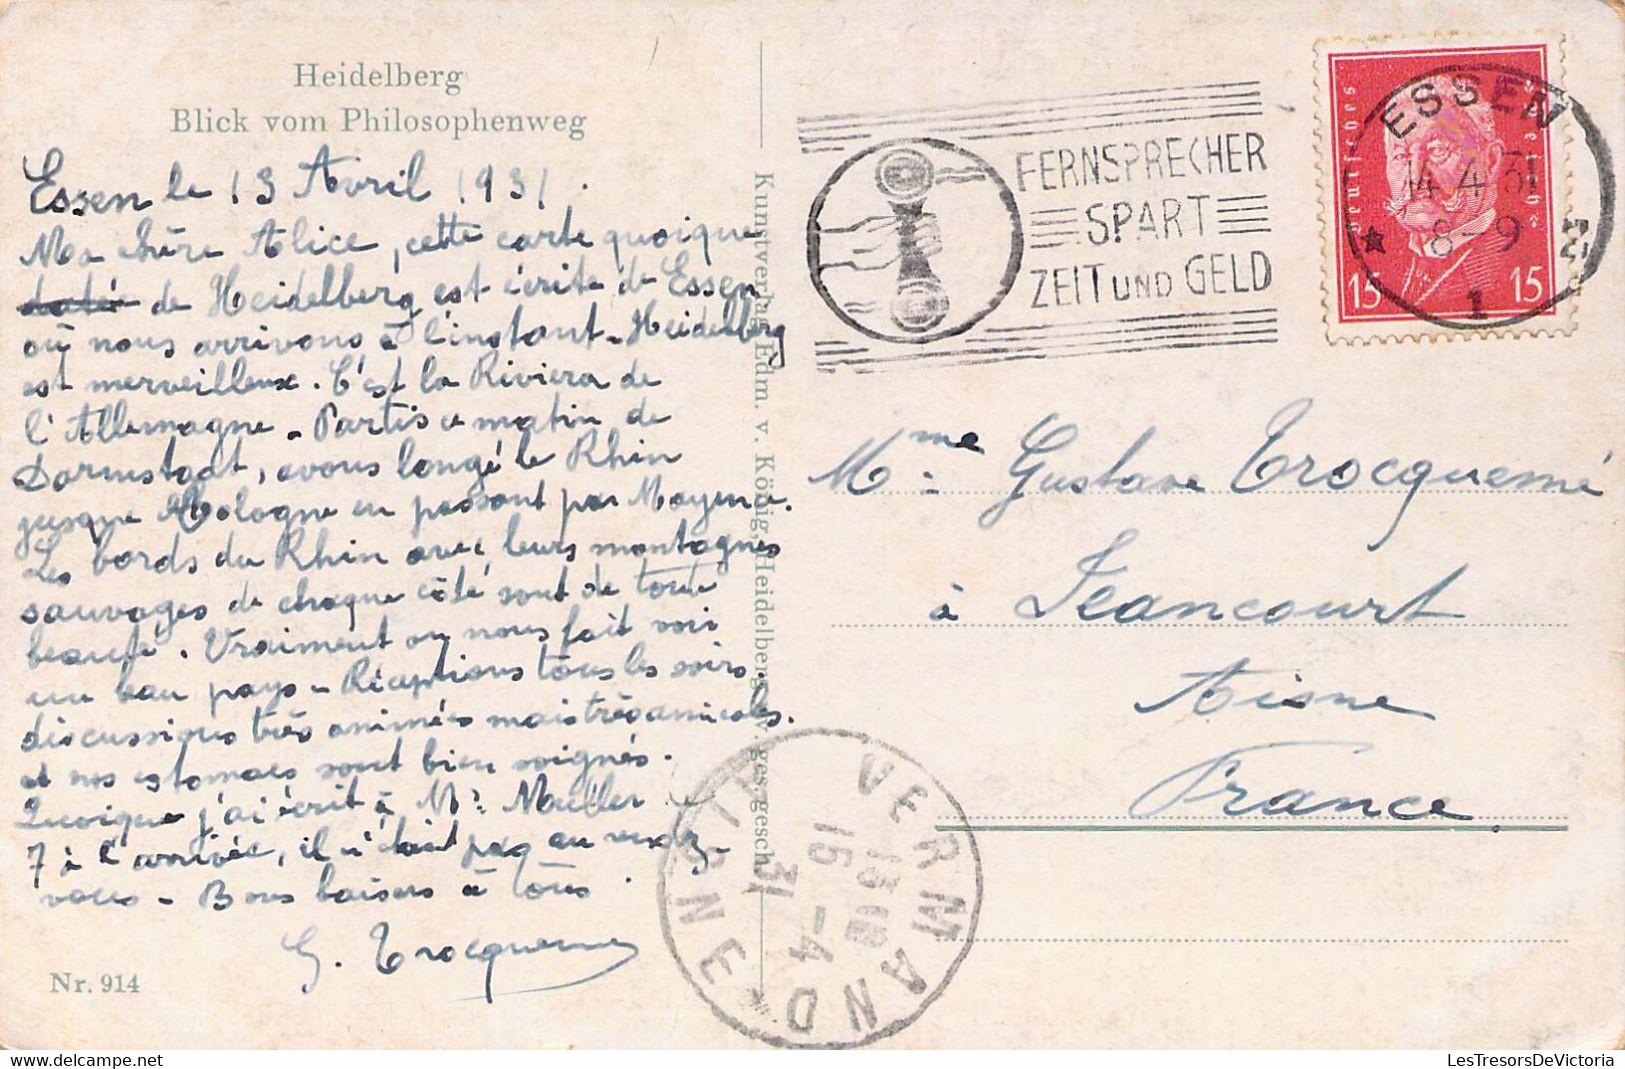 Heidelberg
Blick vom Philosophenweg
Essen le 13 Avril 1931.
Ma chère Alice, cette carte quoique
datée de Heidelberg est écrite de Essen
où nous arrivons à l'instant - Heidelberg
est merveilleux. C'est la Riviera de
l'Allemagne - Partis ce matin de
Darmstadt, avons longé le Rhin
jusque Cologne en passant par Mayence.
Les bords du Rhin avec leurs montagnes
sauvages de chaque côté sont de toute
beauté. Vraiment on nous fait voir
un beau pays - Réceptions tous les soirs
discussions très animées mais très amicales.
et nos estomacs sont bien soignés.
Quoique j'ai écrit à Mr Müller
7 à l'arrivée, il n'était pas au rendez-
vous - Bons baisers à tous.
G. Trocquemé
Nr. 914
Kunstverlag Edm. v. König, Heidelberg ges. gesch.
FERNSPRECHER
SPART
ZEIT UND GELD
Deutsches Reich
15 15
ESSEN
14.4.31
8-9
★ 1 N
Mme Gustave Trocquemé
à Jeancourt
Aisne
France
VERMAND
AISNE
15-4
31
LesTresorsDeVictoria